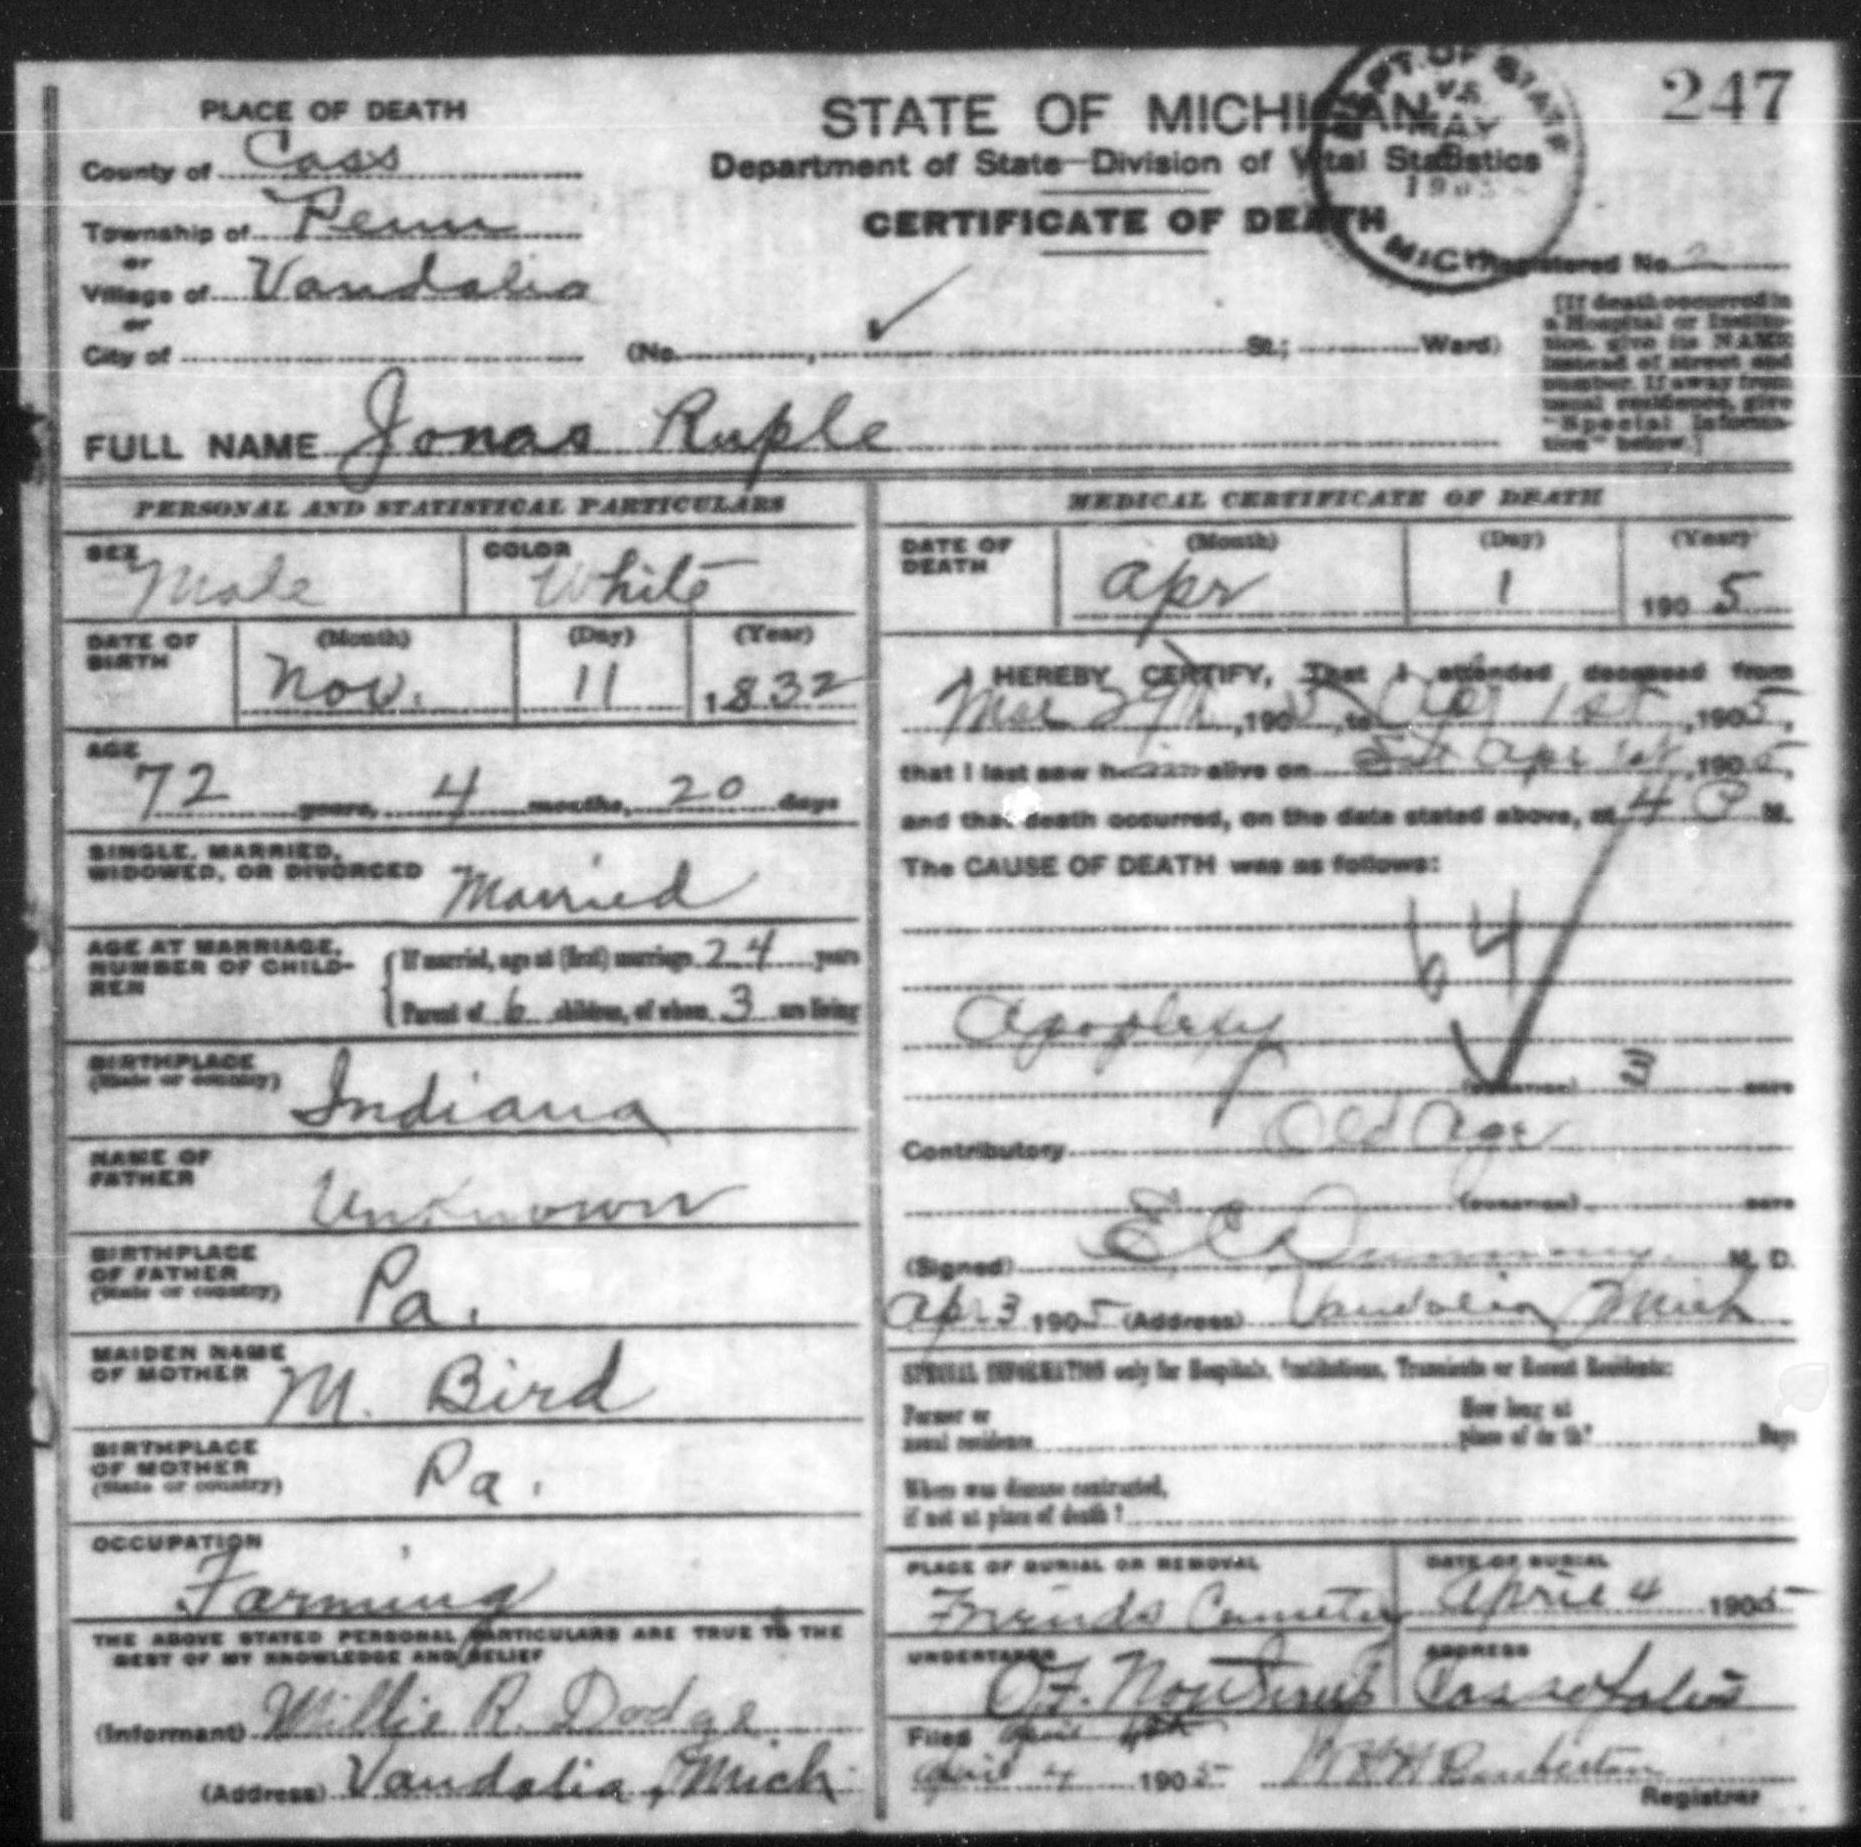 247
PLACE OF DEATH
County of Cass
Township of Penn
or
Village of Vandalia
or
City of
STATE OF MICHIGAN
Department of State—Division of Vital Statistics
CERTIFICATE OF DEATH
DEPT. OF STATE
VS
MAY
190
MICH.
Registered No. 2
(No. , St.; Ward)
[If death occurred in
a Hospital or Institu-
tion, give its NAME
instead of street and
number. If away from
usual residence, give
"Special Informa-
tion" below.]
FULL NAME Jonas Ruple
PERSONAL AND STATISTICAL PARTICULARS
SEX Male
COLOR White
DATE OF BIRTH (Month) (Day) (Year)
Nov. 11 1832
AGE
72 years, 4 months, 20 days
SINGLE, MARRIED,
WIDOWED, OR DIVORCED Married
AGE AT MARRIAGE,
NUMBER OF CHILD-
REN
If married, age at (first) marriage 24 years
Parent of 6 children, of whom 3 are living
BIRTHPLACE
(State or country) Indiana
NAME OF
FATHER Unknown
BIRTHPLACE
OF FATHER
(State or country) Pa.
MAIDEN NAME
OF MOTHER M. Bird
BIRTHPLACE
OF MOTHER
(State or country) Pa.
OCCUPATION
Farming
THE ABOVE STATED PERSONAL PARTICULARS ARE TRUE TO THE
BEST OF MY KNOWLEDGE AND BELIEF
(Informant) Willie R. Dodge
(Address) Vandalia, Mich
MEDICAL CERTIFICATE OF DEATH
DATE OF DEATH (Month) (Day) (Year)
Apr 1 1905
I HEREBY CERTIFY, That I attended deceased from
Mar 29th, 1905, to Apr 1st, 1905,
that I last saw him alive on Apr 1st, 1905,
and that death occurred, on the date stated above, at 4 P M.
The CAUSE OF DEATH was as follows:
64
Apoplexy
(DURATION) 3 DAYS
Contributory Old Age
(DURATION) DAYS
(Signed) E C M. D.
Apr 3 1905 (Address) Vandalia Mich
SPECIAL INFORMATION only for Hospitals, Institutions, Transients or Recent Residents:
Former or
usual residence
How long at
place of death? Days
Where was disease contracted,
if not at place of death?
PLACE OF BURIAL OR REMOVAL
Friends Cemetery
DATE OF BURIAL
April 4 1905
UNDERTAKER
O.F.
ADDRESS
Cassopolis
Filed April 4th
April 4 1905
Pemberton
Registrar